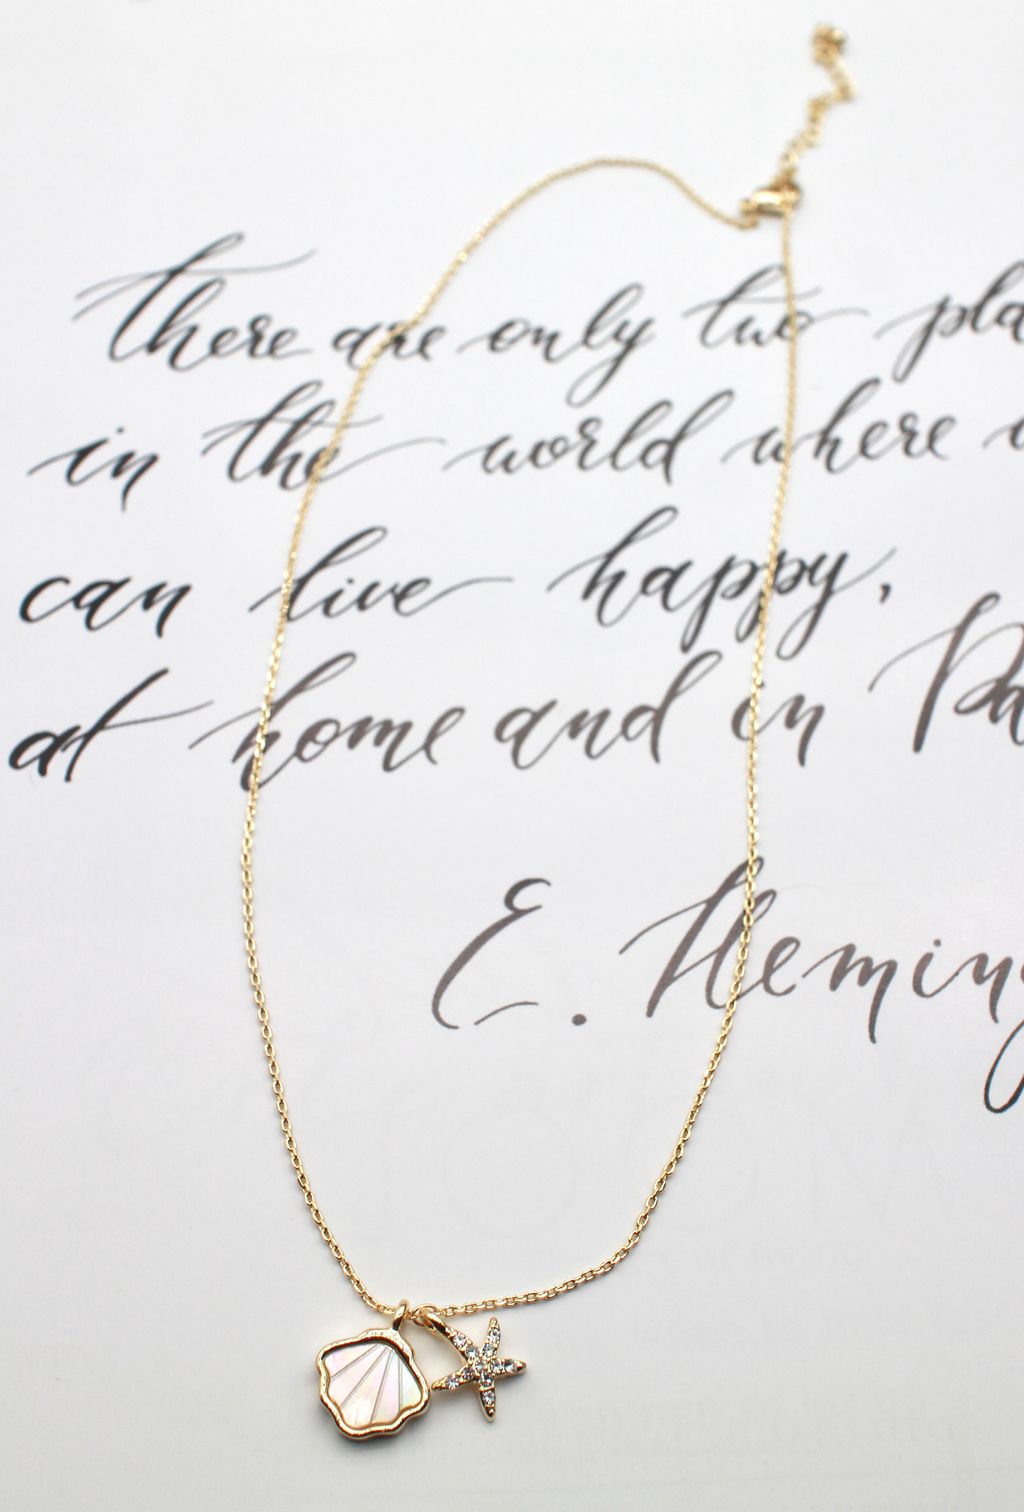 There are only two pla
in the world where
can live happy,
at home and in Pa
E. Heming